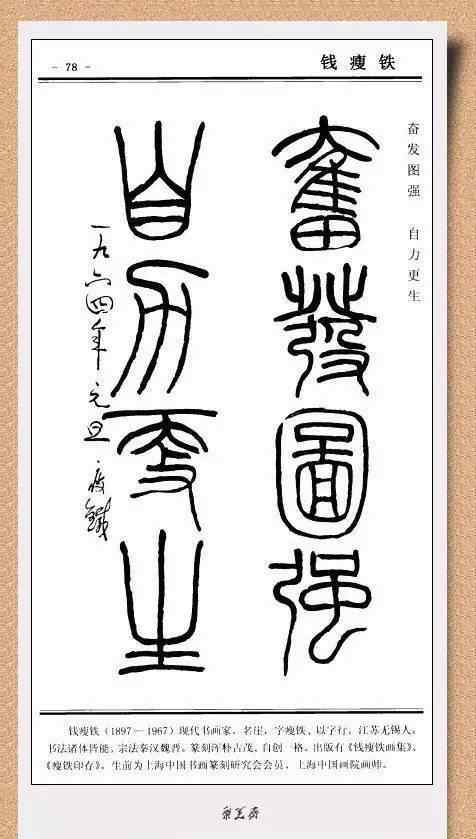 - 78 -
钱瘦铁
奋发图强 自力更生
奮發圖强
自力更生
一九六四年元旦 瘦鐵
钱瘦铁(1897—1967)现代书画家。名崖,字瘦铁、以字行,江苏无锡人。
书法诸体皆能,宗法秦汉魏晋。篆刻浑朴古茂,自创一格。出版有《钱瘦铁画集》、
《瘦铁印存》。生前为上海中国书画篆刻研究会会员,上海中国画院画师。